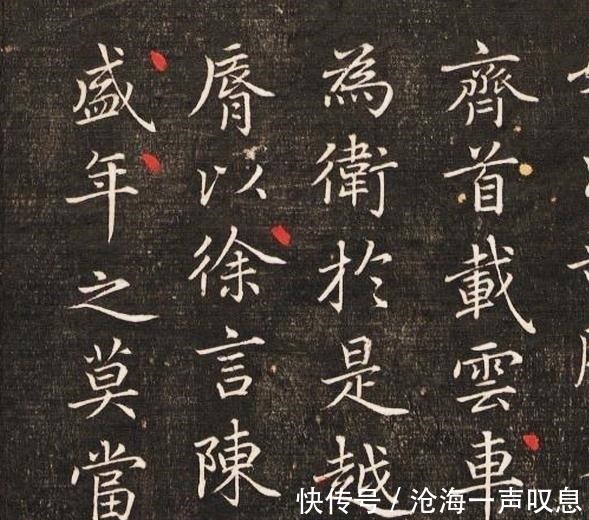 齊首載雲車
為衛於是越
脣以徐言陳
盛年之莫當
快传号 / 沧海一声叹息